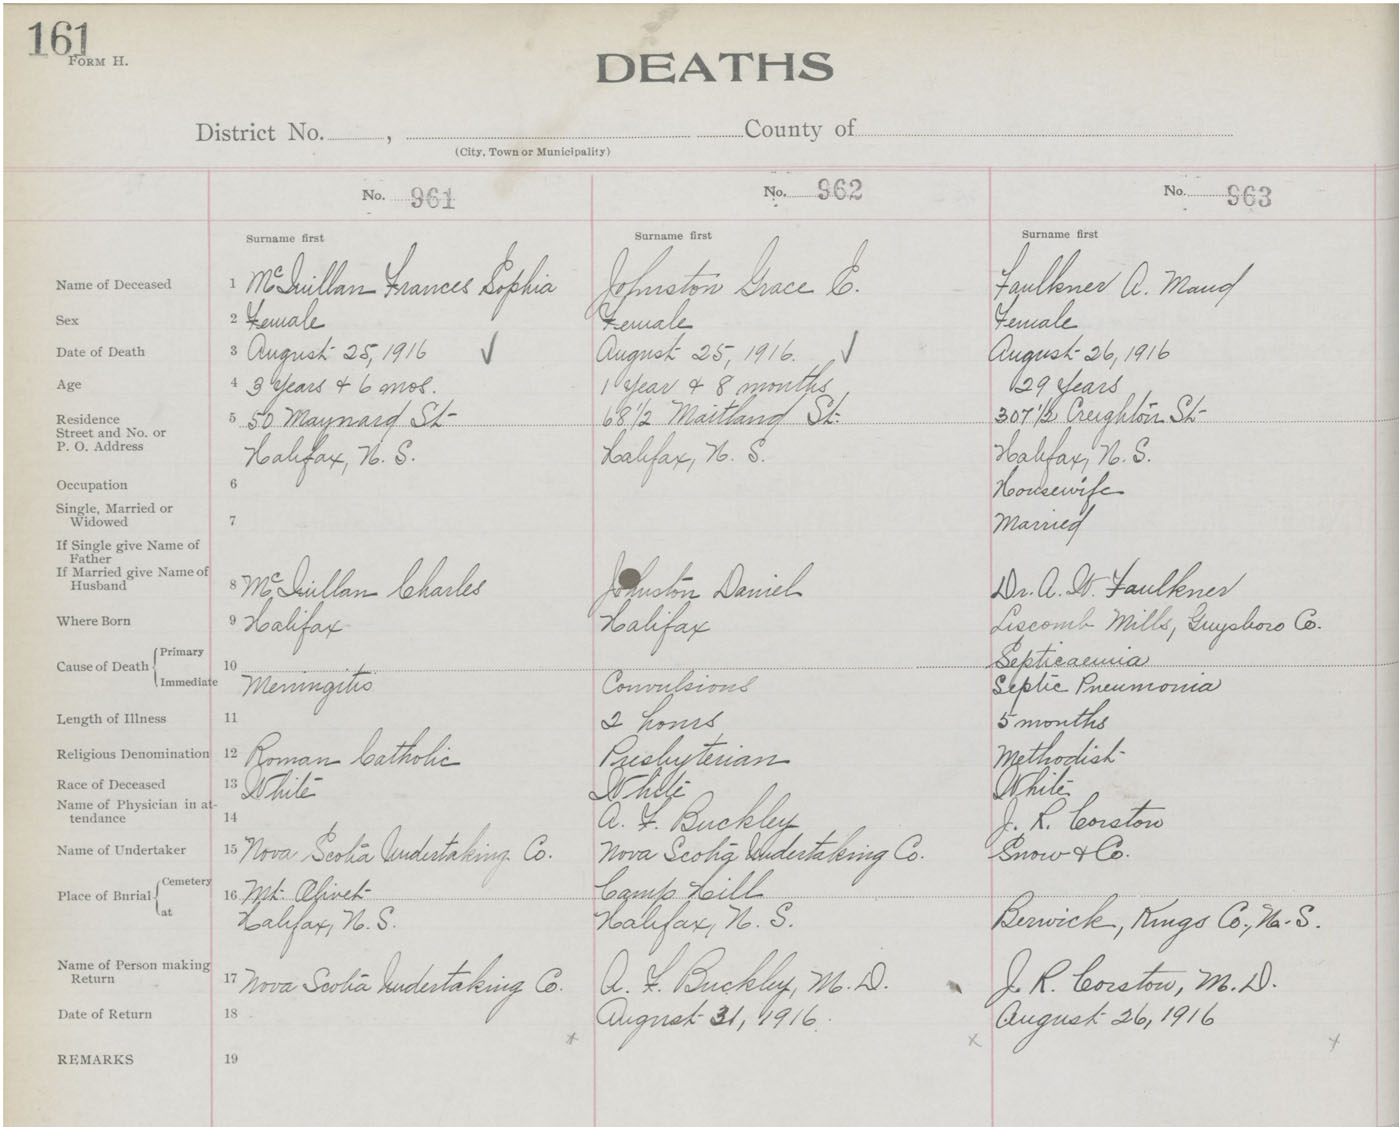 161
FORM H.
DEATHS
District No. , County of
(City, Town or Municipality)
No. 961 No. 962 No. 963
Surname first Surname first Surname first
Name of Deceased 1 McQuillan Frances Sophia Johnston Grace E. Faulkner A. Maud
Sex 2 Female Female Female
Date of Death 3 August 25, 1916 ✓ August 25, 1916. ✓ August 26, 1916
Age 4 3 years & 6 mos. 1 year & 8 months 29 years
Residence 5 50 Maynard St 68 1/2 Maitland St. 307 1/2 Creighton St
Street and No. or
P. O. Address Halifax, N. S. Halifax, N. S. Halifax, N. S.
Occupation 6 Housewife
Single, Married or
Widowed 7 Married
If Single give Name of
Father
If Married give Name of
Husband 8 McQuillan Charles Johnston Daniel Dr. A. W. Faulkner
Where Born 9 Halifax Halifax Liscomb Mills, Guysboro Co.
Cause of Death { Primary 10 Septicaemia
Immediate Meningitis Convulsions Septic Pneumonia
Length of Illness 11 2 hours 5 months
Religious Denomination 12 Roman Catholic Presbyterian Methodist
Race of Deceased 13 White White White
Name of Physician in at-
tendance 14 A. F. Buckley J. R. Corston
Name of Undertaker 15 Nova Scotia Undertaking Co. Nova Scotia Undertaking Co. Snow & Co.
Place of Burial { Cemetery 16 Mt. Olivet Camp Hill
at Halifax, N. S. Halifax, N. S. Berwick, Kings Co., N. S.
Name of Person making
Return 17 Nova Scotia Undertaking Co. A. F. Buckley, M. D. J. R. Corston, M. D.
Date of Return 18 August 31, 1916. August 26, 1916
x x x
REMARKS 19